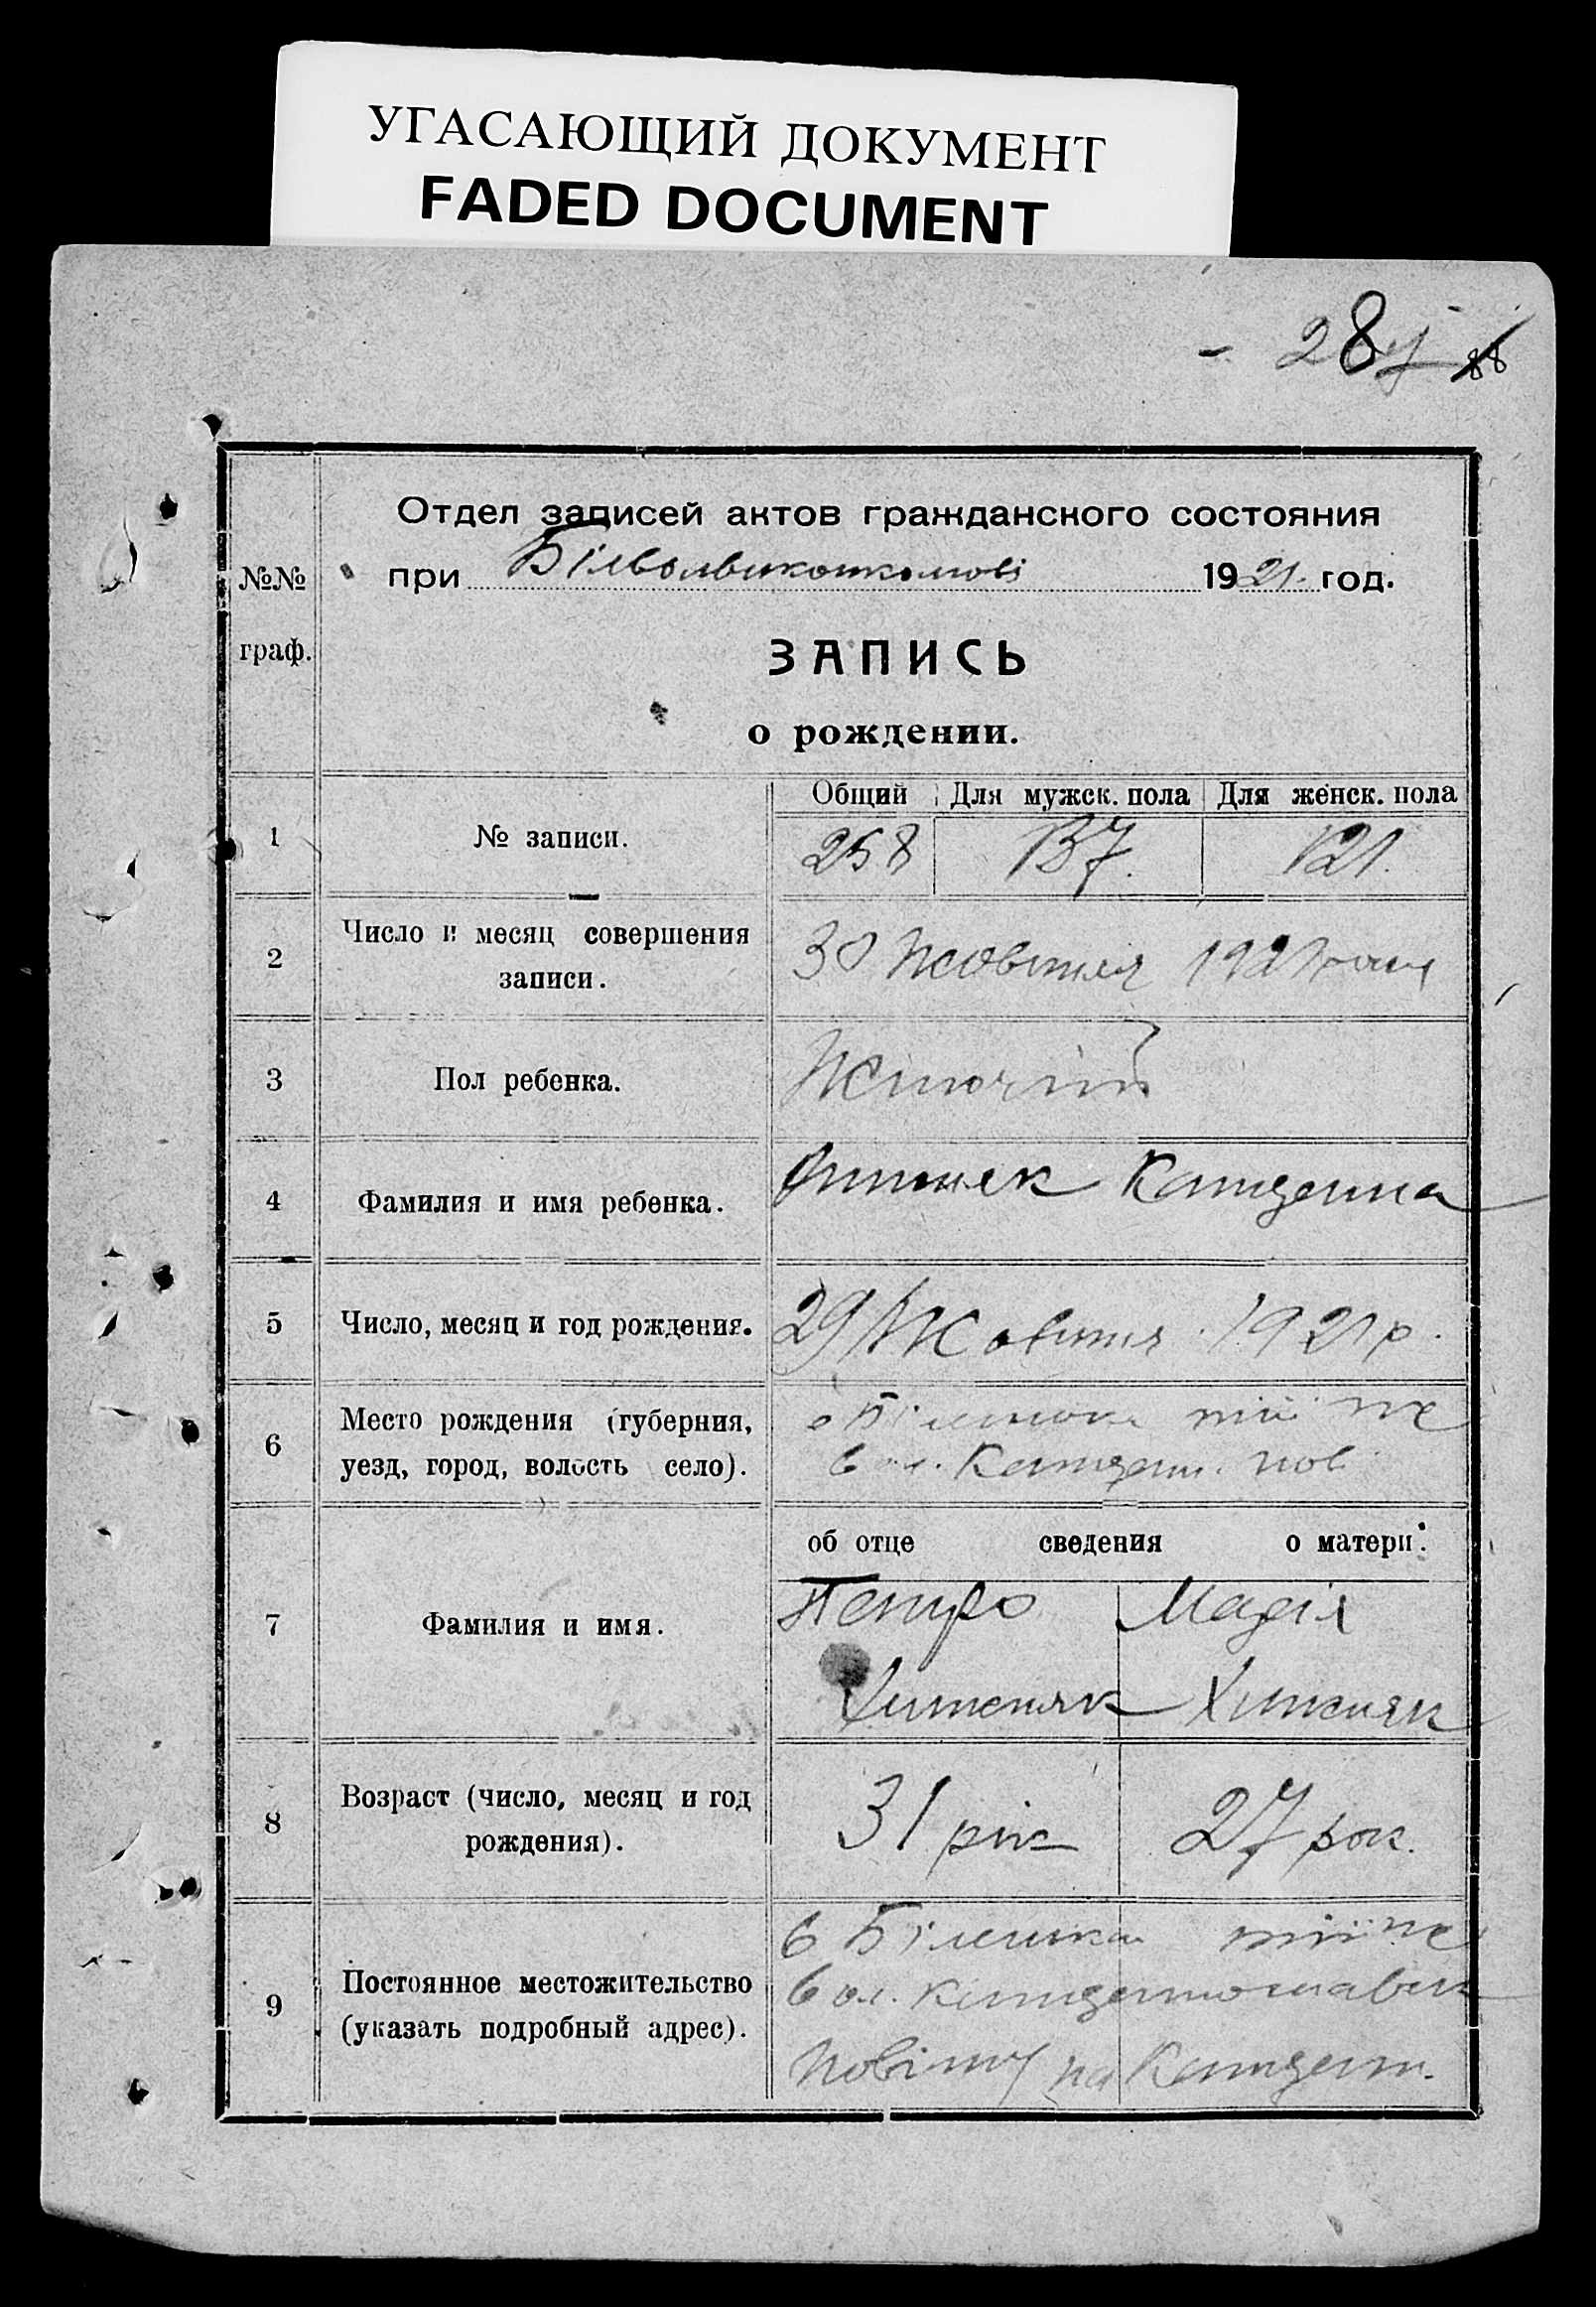 УГАСАЮЩИЙ ДОКУМЕНТ
FADED DOCUMENT
88
Отдел записей актов гражданского состояния
№№ при Білволвикопкомові 1921 год.
граф.
ЗАПИСЬ
о рождении.
Общий Для мужск. пола Для женск. пола
1 № записи. 258 137. 121.
2 Число и месяц совершения
записи.
30 Жовтня 1921 року
3 Пол ребенка. Жіночій
4 Фамилия и имя ребенка. Катерина
5 Число, месяц и год рождения. 29 Жовтня 1921 р.
6 Место рождения (губерния,
уезд, город, волость село).
вол. пов
об отце сведения о матери:
7 Фамилия и имя. Петро Марія
Хижняк Хижняк
8 Возраст (число, месяц и год
рождения).
31 рік 27 рок.
9 Постоянное местожительство
(указать подробный адрес).
вол.
повіту на